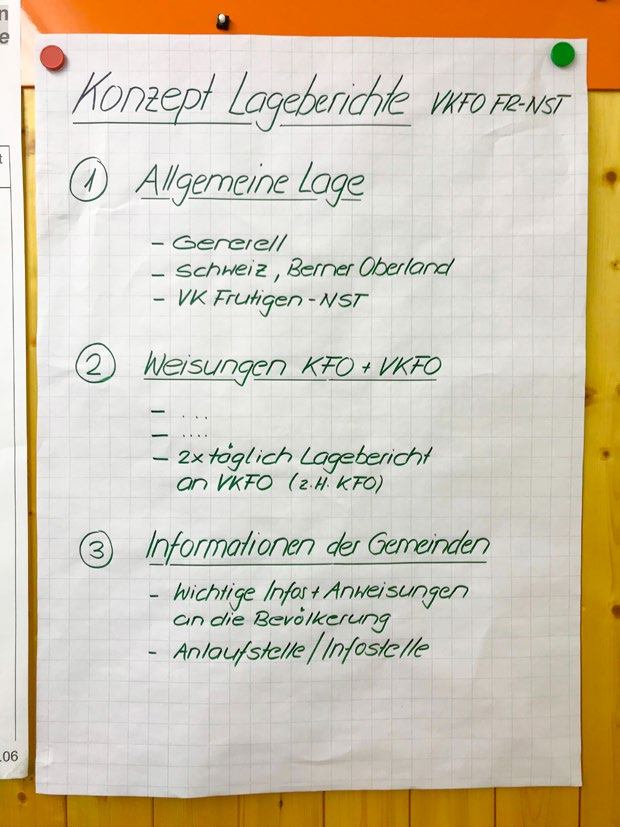 n
e
t
.06
Konzept Lageberichte VKFO FR-NST
1 Allgemeine Lage
- Generell
- Schweiz, Berner Oberland
- VK Frutigen-NST
2 Weisungen KFO + VKFO
- ...
- ....
- 2x täglich Lagebericht
an VKFO (z.H. KFO)
3 Informationen der Gemeinden
- Wichtige Infos + Anweisungen
an die Bevölkerung
- Anlaufstelle / Infostelle